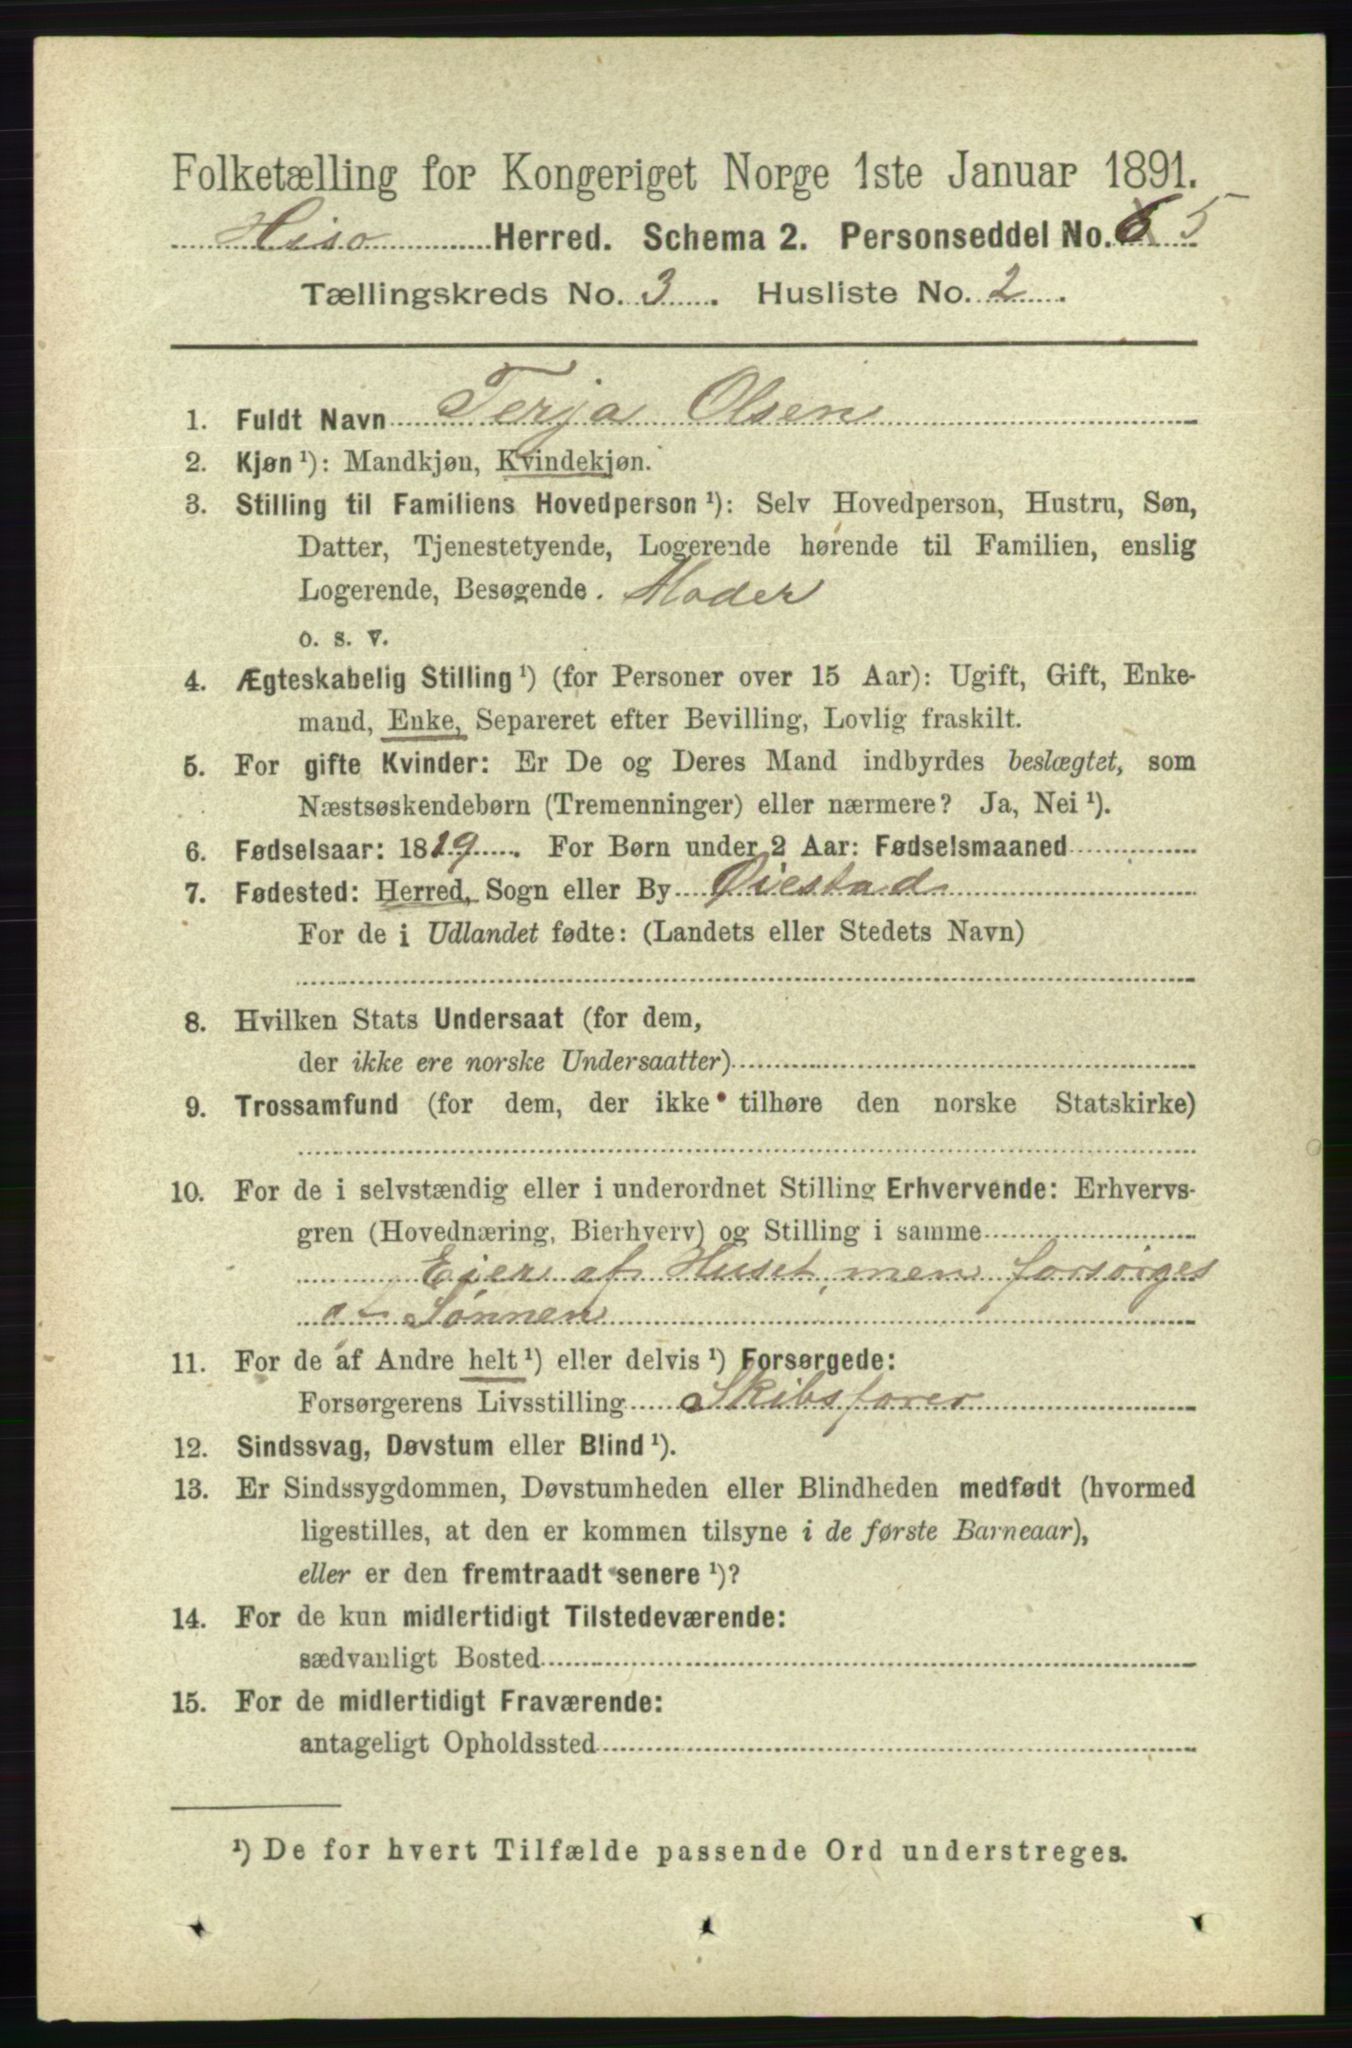 Folketælling for Kongeriget Norge 1ste Januar 1891.
Hisø Herred. Schema 2. Personseddel No. 6 5
Tællingskreds No. 3. Husliste No. 2.
1. Fuldt Navn Terja Olsen
2. Kjøn ¹): Mandkjøn, Kvindekjøn.
3. Stilling til Familiens Hovedperson ¹): Selv Hovedperson, Hustru, Søn,
Datter, Tjenestetyende, Logerende hørende til Familien, enslig
Logerende, Besøgende. Moder
o. s. v.
4. Ægteskabelig Stilling ¹) (for Personer over 15 Aar): Ugift, Gift, Enke-
mand, Enke, Separeret efter Bevilling, Lovlig fraskilt.
5. For gifte Kvinder: Er De og Deres Mand indbyrdes beslægtet, som
Næstsøskendebørn (Tremenninger) eller nærmere? Ja, Nei ¹).
6. Fødselsaar: 1819. For Børn under 2 Aar: Fødselsmaaned
7. Fødested: Herred, Sogn eller By Øiestad
For de i Udlandet fødte: (Landets eller Stedets Navn)
8. Hvilken Stats Undersaat (for dem,
der ikke ere norske Undersaatter)
9. Trossamfund (for dem, der ikke tilhøre den norske Statskirke)
10. For de i selvstændig eller i underordnet Stilling Erhvervende: Erhvervs-
gren (Hovednæring, Bierhverv) og Stilling i samme
Ejer af Huset, men forsørges
af Sønnen
11. For de af Andre helt ¹) eller delvis ¹) Forsørgede:
Forsørgerens Livsstilling Skibsfører
12. Sindssvag, Døvstum eller Blind ¹).
13. Er Sindssygdommen, Døvstumheden eller Blindheden medfødt (hvormed
ligestilles, at den er kommen tilsyne i de første Barneaar),
eller er den fremtraadt senere ¹)?
14. For de kun midlertidigt Tilstedeværende:
sædvanligt Bosted
15. For de midlertidigt Fraværende:
antageligt Opholdssted
¹) De for hvert Tilfælde passende Ord understreges.